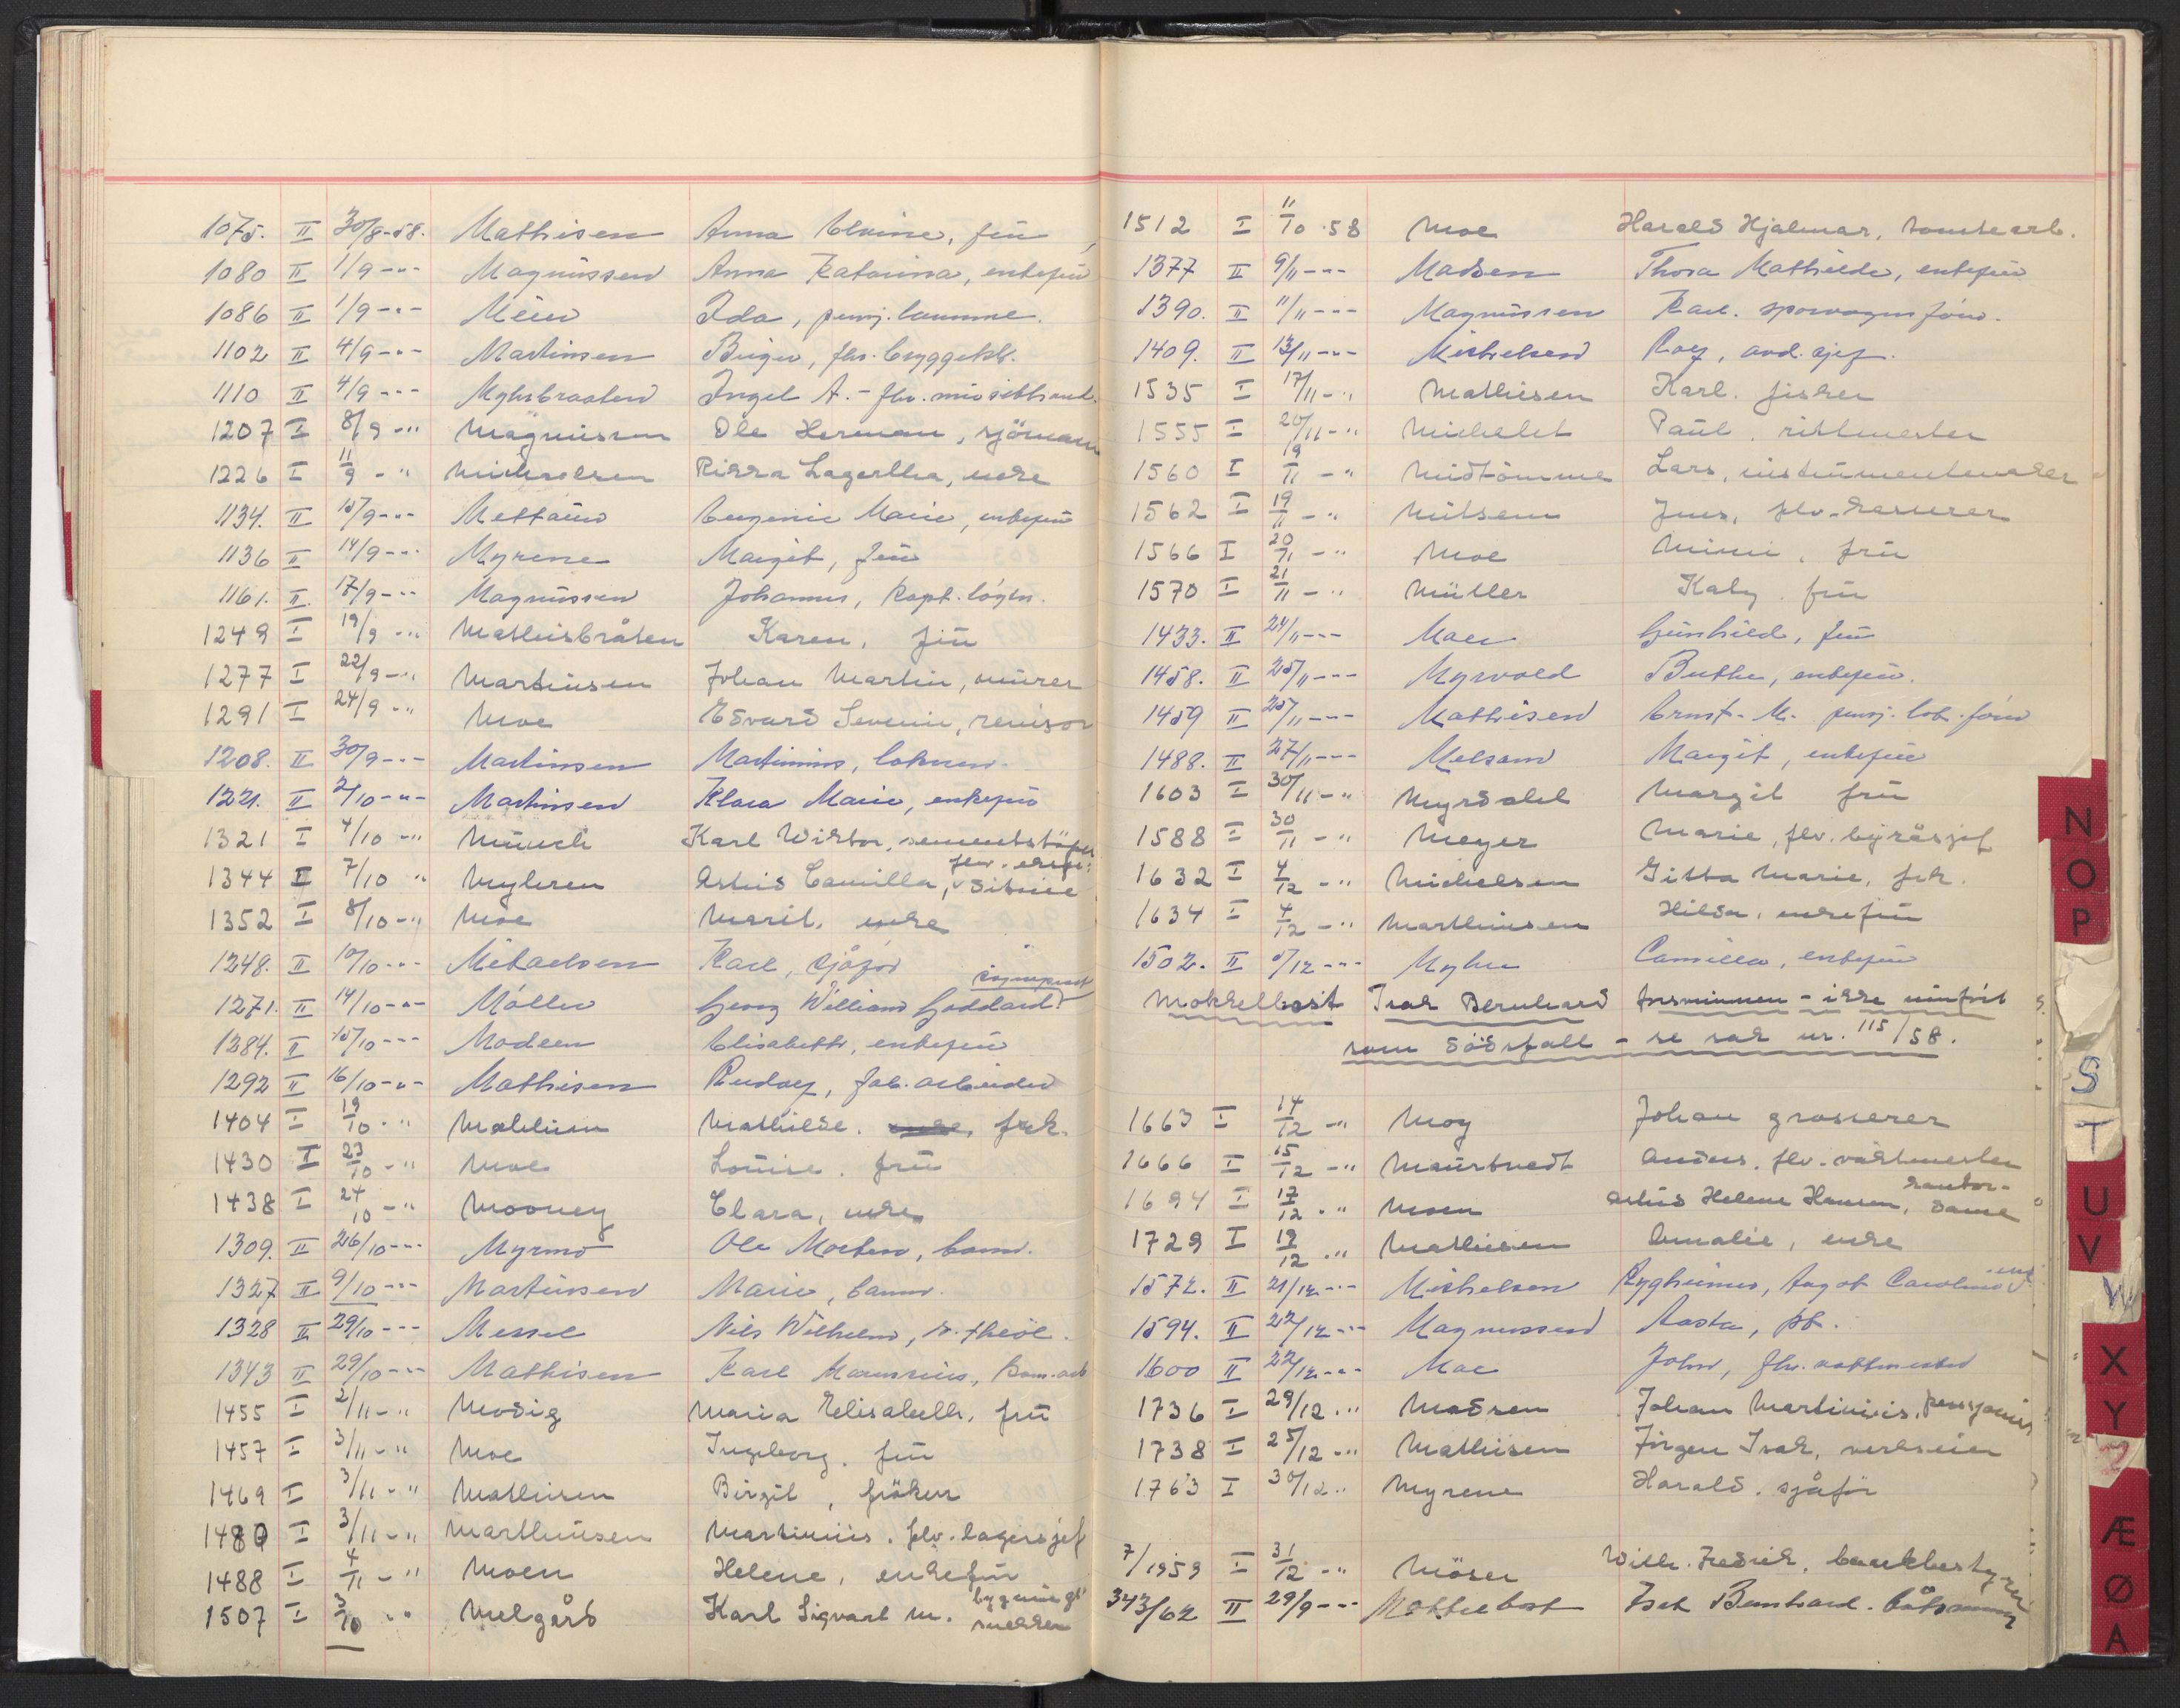 1075. II 30/8-58. Mathisen Anna Elvine, frü
1080 II 1/9 -"- Magnüssen Anna Katarina, enkefrü
1086 II 1/9 -"- Meier Ida, pensj.
1102 II 4/9 -"- Martinsen Birger, fhv. bryggektr.
1110 II 4/9 -"- Myhrbraaten Ingel A. - fhv.
1207 I 8/9 -"- Magnüssen Ole Herman, sjömann
1226 I 11/9 -" Michaelsen Rikka Lagertha, enke
1134. II 10/9 -"- Eugenie Marie, enkefrü
1136 II 14/9 -"- Myrene Margit, frü
1161. II 17/9 -"- Magnüssen Johannes,
1249 I 19/9 -" Mathisbråten Karen, frü
1277 I 22/9 -" Martinsen Johan Martin, mürer
1291 I 24/9 -" Moe Edvard Severin, revisor
1208. II 30/9 -"- Martinsen Martinius,
1221. II 2/10 -"- Martinsen Klara Marie, enkefrü
1321 I 4/10 -" Münch Karl Wiktor, sementstöper
1344 II 7/10 " Myhren Astrid Camilla, fhv. eksp. ditrice
1352 I 8/10 -" Moe Marit, enke
1248. II 10/10 -"- Mikaelsen Karl, sjåför
1271. II 14/10 -"- Möller Georg William Goddard, sogneprest
1284. II 15/10 -"- Madsen Elisabeth, enkefrü
1292 II 16/10 -"- Mathisen Rudolf, fab. arbeider
1404 I 19/10 -" Mathisen Mathilde. frk.
1430 I 23/10 -" Moe Louise. frü
1438 I 24/10 -" Mooney Clara, enke
1309. II 26/10 -"- Myrmo Ole Morten, barn.
1327 II 9/10 -"- Martinsen Marie,
1328 II 29/10 -"- Messel Nils Wilhelm, theol.
1343 II 29/10 -"- Mathisen Karl
1455 I 2/11 -" Modig Maria Elisabeth, frü
1457 I 3/11 -" Moe Ingeborg. frü
1469 I 3/11 -" Mathisen Birgit, fröken
1480 I 3/11 -" Marthinsen Martinius. fhv. lagersjef
1488 I 4/11 -" Moen Helene, enkefrü
1507 I 3/10 " Melgård Karl Sigvart M. bygnings snekker
1512 I 11/10 .58 Moe Harald Hjalmar, tomtearb.
1377 II 9/11 -"- Madsen Thora Mathilde, enkefrü
1390. II 11/11 -"- Magnüssen Karl. sporvognsfører.
1409. II 13/11 -"- Michelsen Roef, avd. sjef.
1535 I 17/11 -" Mathisen Karl. fisker
1555 I 20/11 -" Michelet Paül. rittmester
1560 I 19/11 -" Midtömme Lars, instrümentmaker
1562 I 19/11 -" Jens, fhv. kasserer
1566 I 20/11 -" Moe Mimi, frü
1570 I 21/11 -" Müller Kaby. frü
1433. II 24/11 -"- Moen Günhild, frü
1458. II 25/11 -"- Myrvold Berthe, enkefrü.
1459 II 25/11 -"- Mathisen Ernst. M. pensj. lok. fører
1488. II 27/11 -"- Melsom Margit, enkefrü
1603 I 30/11 -" Myrdahl Margit frü
1588 I 30/11 -" Meyer Marie, fhv. byråsjef
1632 I 4/12 -" Michelsen Gitta Marie, frk.
1634 I 4/12 -" Marthinsen Hilda, enkefrü
1502. II 5/12 -"- Myhre Camilla, enkefrü
Mokkelbost Isak Bernhard forsvünnen - ikke innfört
som dödsfall - se sak nr. 115/58.
1663 I 14/12 -" Moy Johan grosserer
1666 I 15/12 -" Maurtvedt Anders. fhv. vaktmester
1694 I 17/12 -" Moen Astrid Helene Hansen, kontor-dame
1729 I 19/12 -" Mathisen Amalie, enke
1572. II 21/12 -"- Michelsen Rygheimer, Aagot Caroline
1594. II 22/12 -"- Magnussen Aasta, frk.
1600 II 22/12 -"- Moe John, fhv. vaktmester
1736 I 29/12 -" Madsen Johan Martinius, pensjonist
1738 I 25/12 -" Mathisen Jörgen Isak, verkseier
1763 I 30/12 " Myrene Harald. sjåför
7/1959 I 31/12 -" Möser Wilh. Fredrik, bankbestyrer
343/62 II 29/9 -"- Mokkelbost Isak Bernhard. båtsmann
N
O
P
S
T
U
V
W
X
Y
Æ
Ø
A